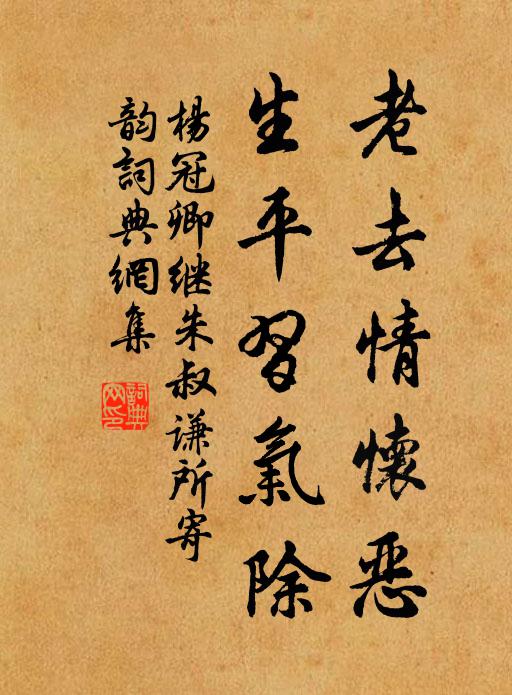 老去情懷恶
生平習氣除
楊冠卿继朱叔谦所寄
韵詞典網集
詞典网印